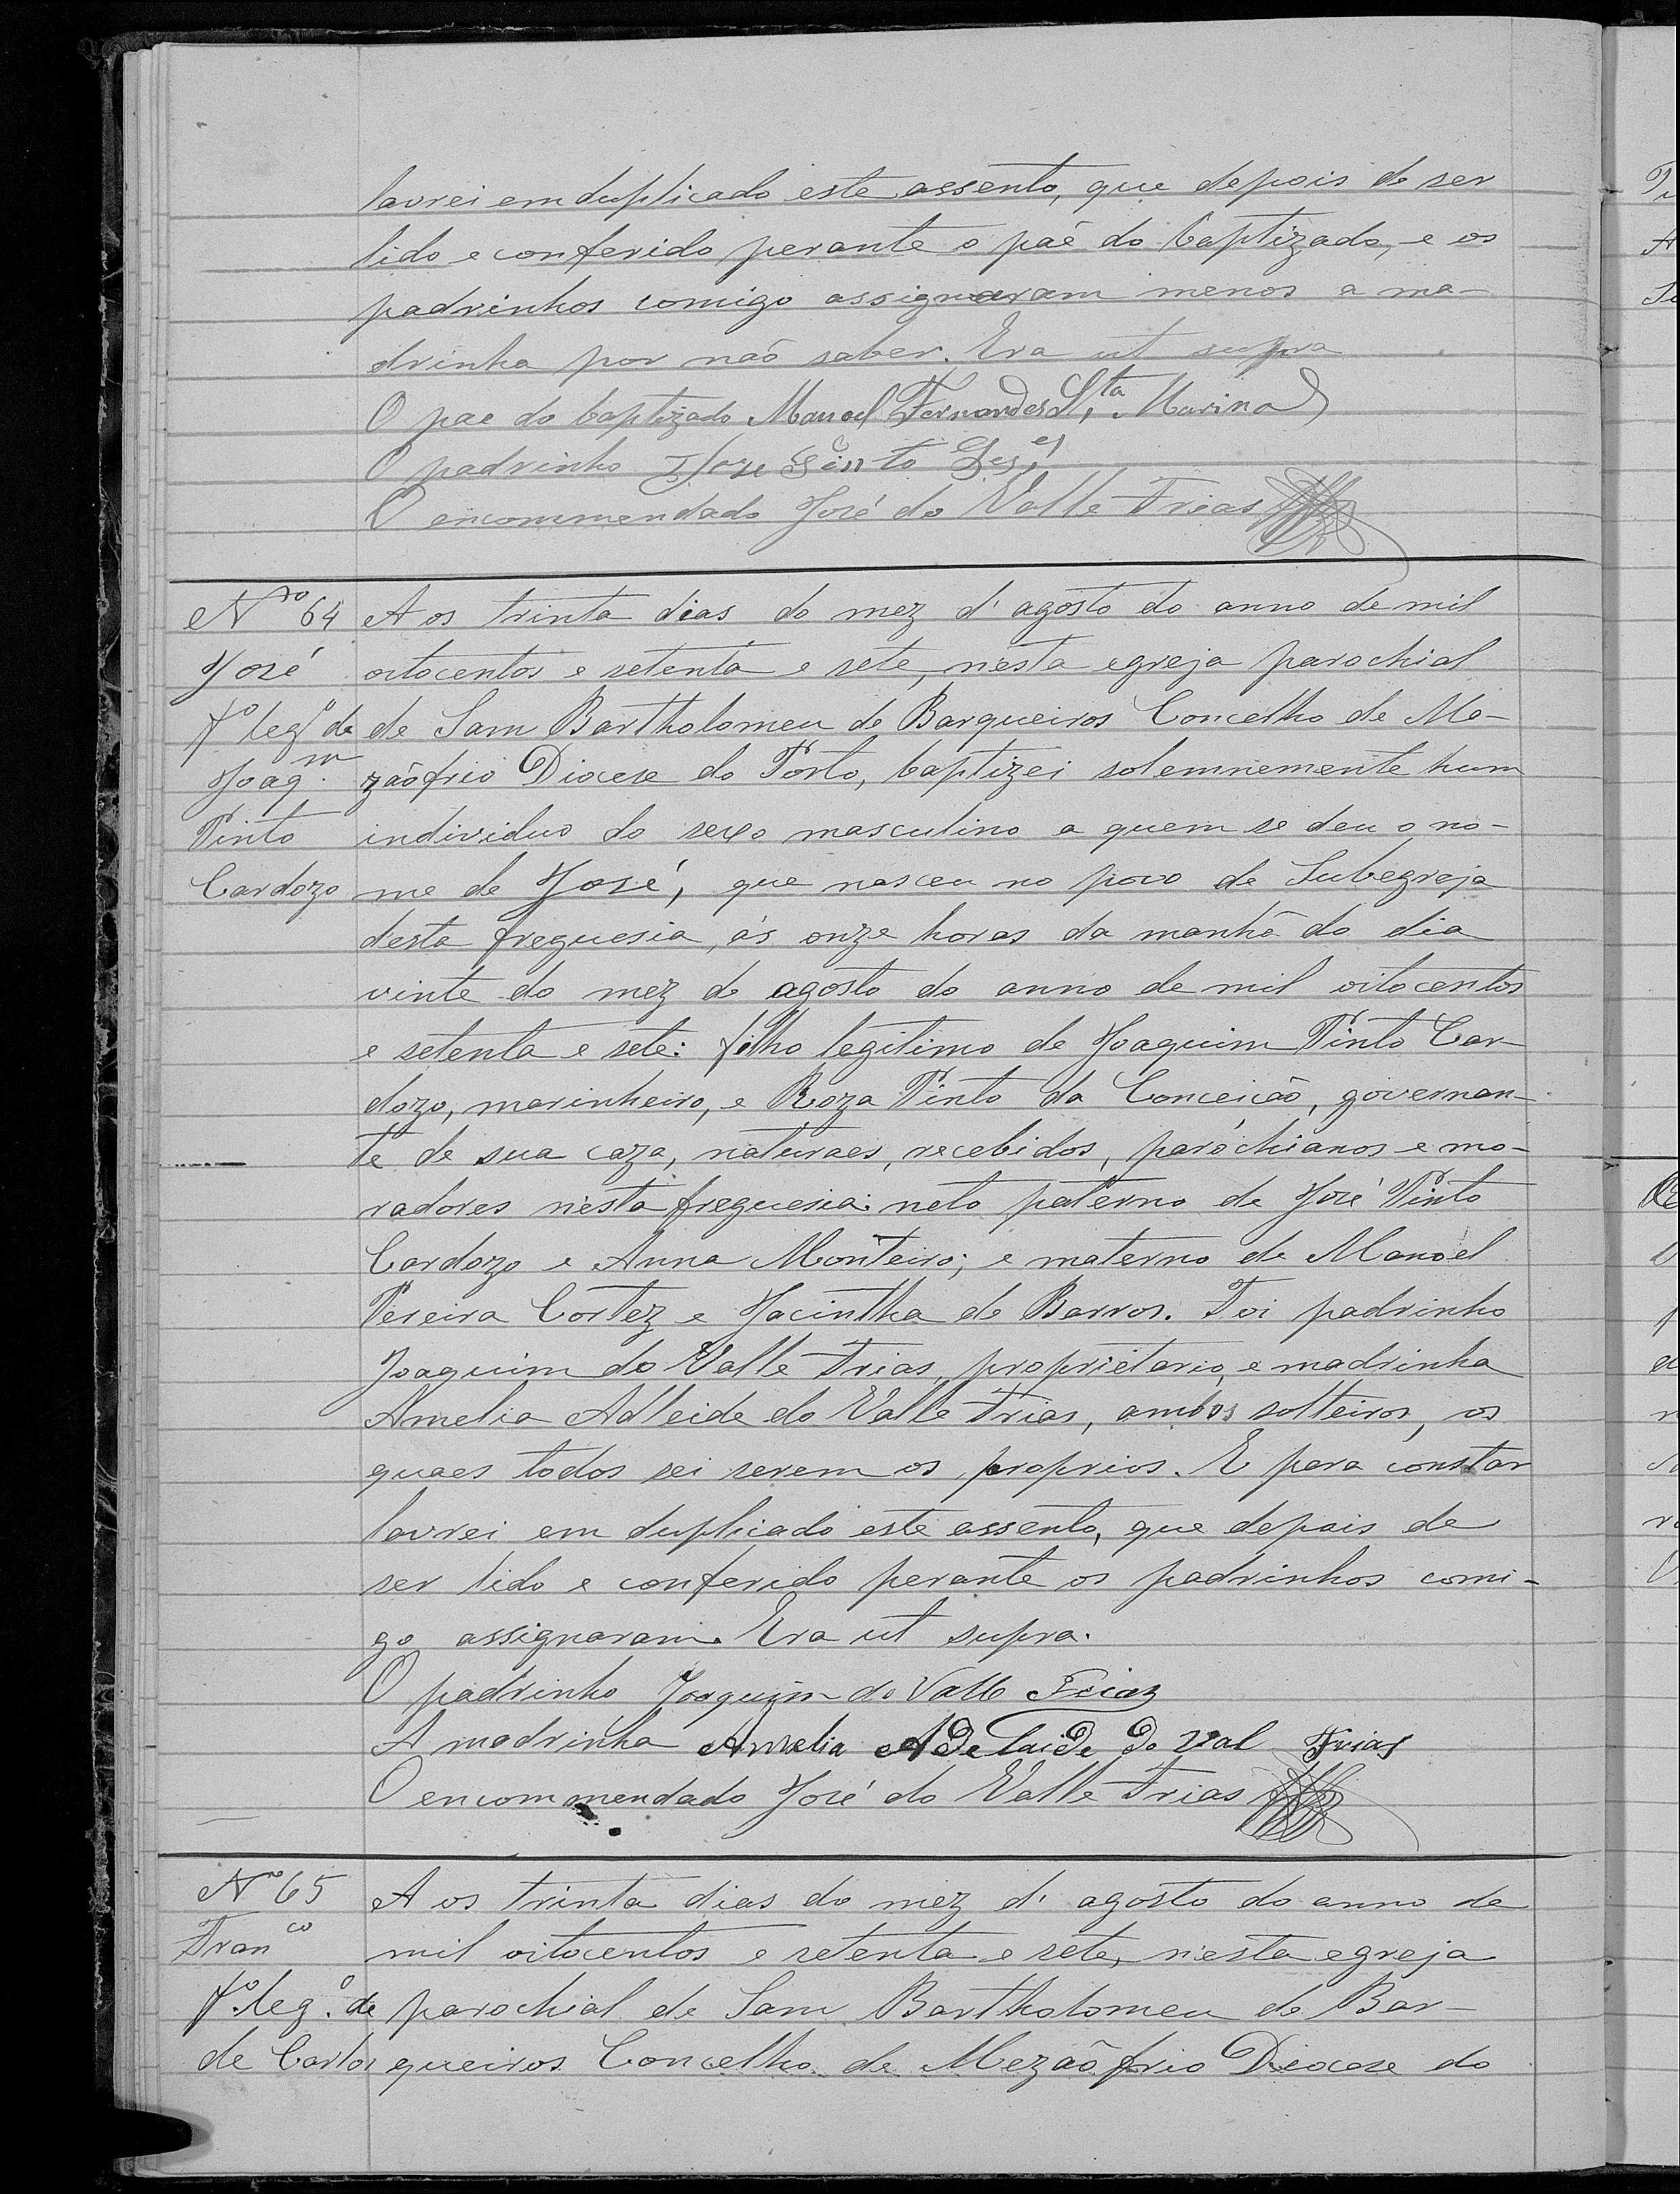 lavrei em duplicado este assento, que depois de ser
lido e conferido perante o paé do baptizado, e os
padrinhos comigo assignaram menos a ma-
drinha por naõ saber. Era ut supra
O pae do baptizado Manoel Fernandes S.ta Marinad
O padrinho Joze Pinto
O encommendado José do Valle Frias
Nro 64
José
fo legº de
Joaq.m
Pinto
Cardozo
Aos trinta dias do mez d'agosto do anno de mil
oitocentos e setenta e sete, nesta egreja parochial
de Sam Bartholomeu de Barqueiros Concelho de Me-
zaõfrio Diocese do Porto, baptizei solemnemente hum
individuo do sexo masculino a quem se deu o no-
me de José, que nasceu no povo de Subegreja
desta freguesia, ás onze horas da manhã do dia
vinte do mez de agosto do anno de mil oitocentos
e setenta e sete: filho legitimo de Joaquim Pinto Car-
dozo, marinheiro, e Roza Pinto da Conceição, governan-
te de sua caza, naturaes, recebidos, paróchianos e mo-
radores nesta freguesia: neto paterno de José Pinto
Cardozo e Anna Monteiro; e materno de Manoel
Pereira Cortez e Jacintha de Barros. Foi padrinho
Joaquim do Valle Frias, proprietario, e madrinha
Amelia Adleide do Valle Frias, ambos solteiros, os
quaes todos sei serem os proprios. E para constar
lavrei em duplicado este assento, que depois de
ser lido e conferido perante os padrinhos comi-
go assignaram. Era ut supra.
O padrinho Joaquim do Valle Frias
A madrinha Amelia Adelaide do Val Frias
O encommendado José do Valle Frias
Nº 65
Franco
fº. leg.º de
de Carlos
Aos trinta dias do mez d'agosto do anno de
mil oitocentos e setenta e sete, nesta egreja
parochial de Sam Bartholomeu de Bar-
queiros Concelho de Mezaõfrio Diocese do